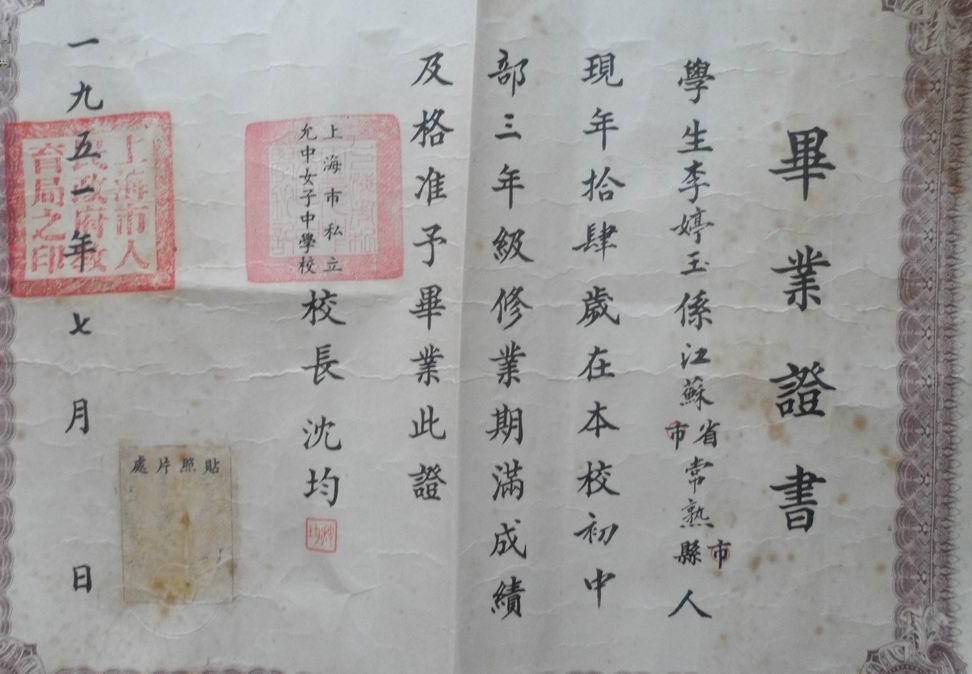 畢業證書
學生李婷玉係江蘇省市常熟縣市人
現年拾肆歲在本校初中
部三年級修業期滿成績
及格准予畢業此證
上海市私立
允中女子中學校
校長沈均
貼照片處
一九五一年七月日
上海市人
民政府教
育局之印